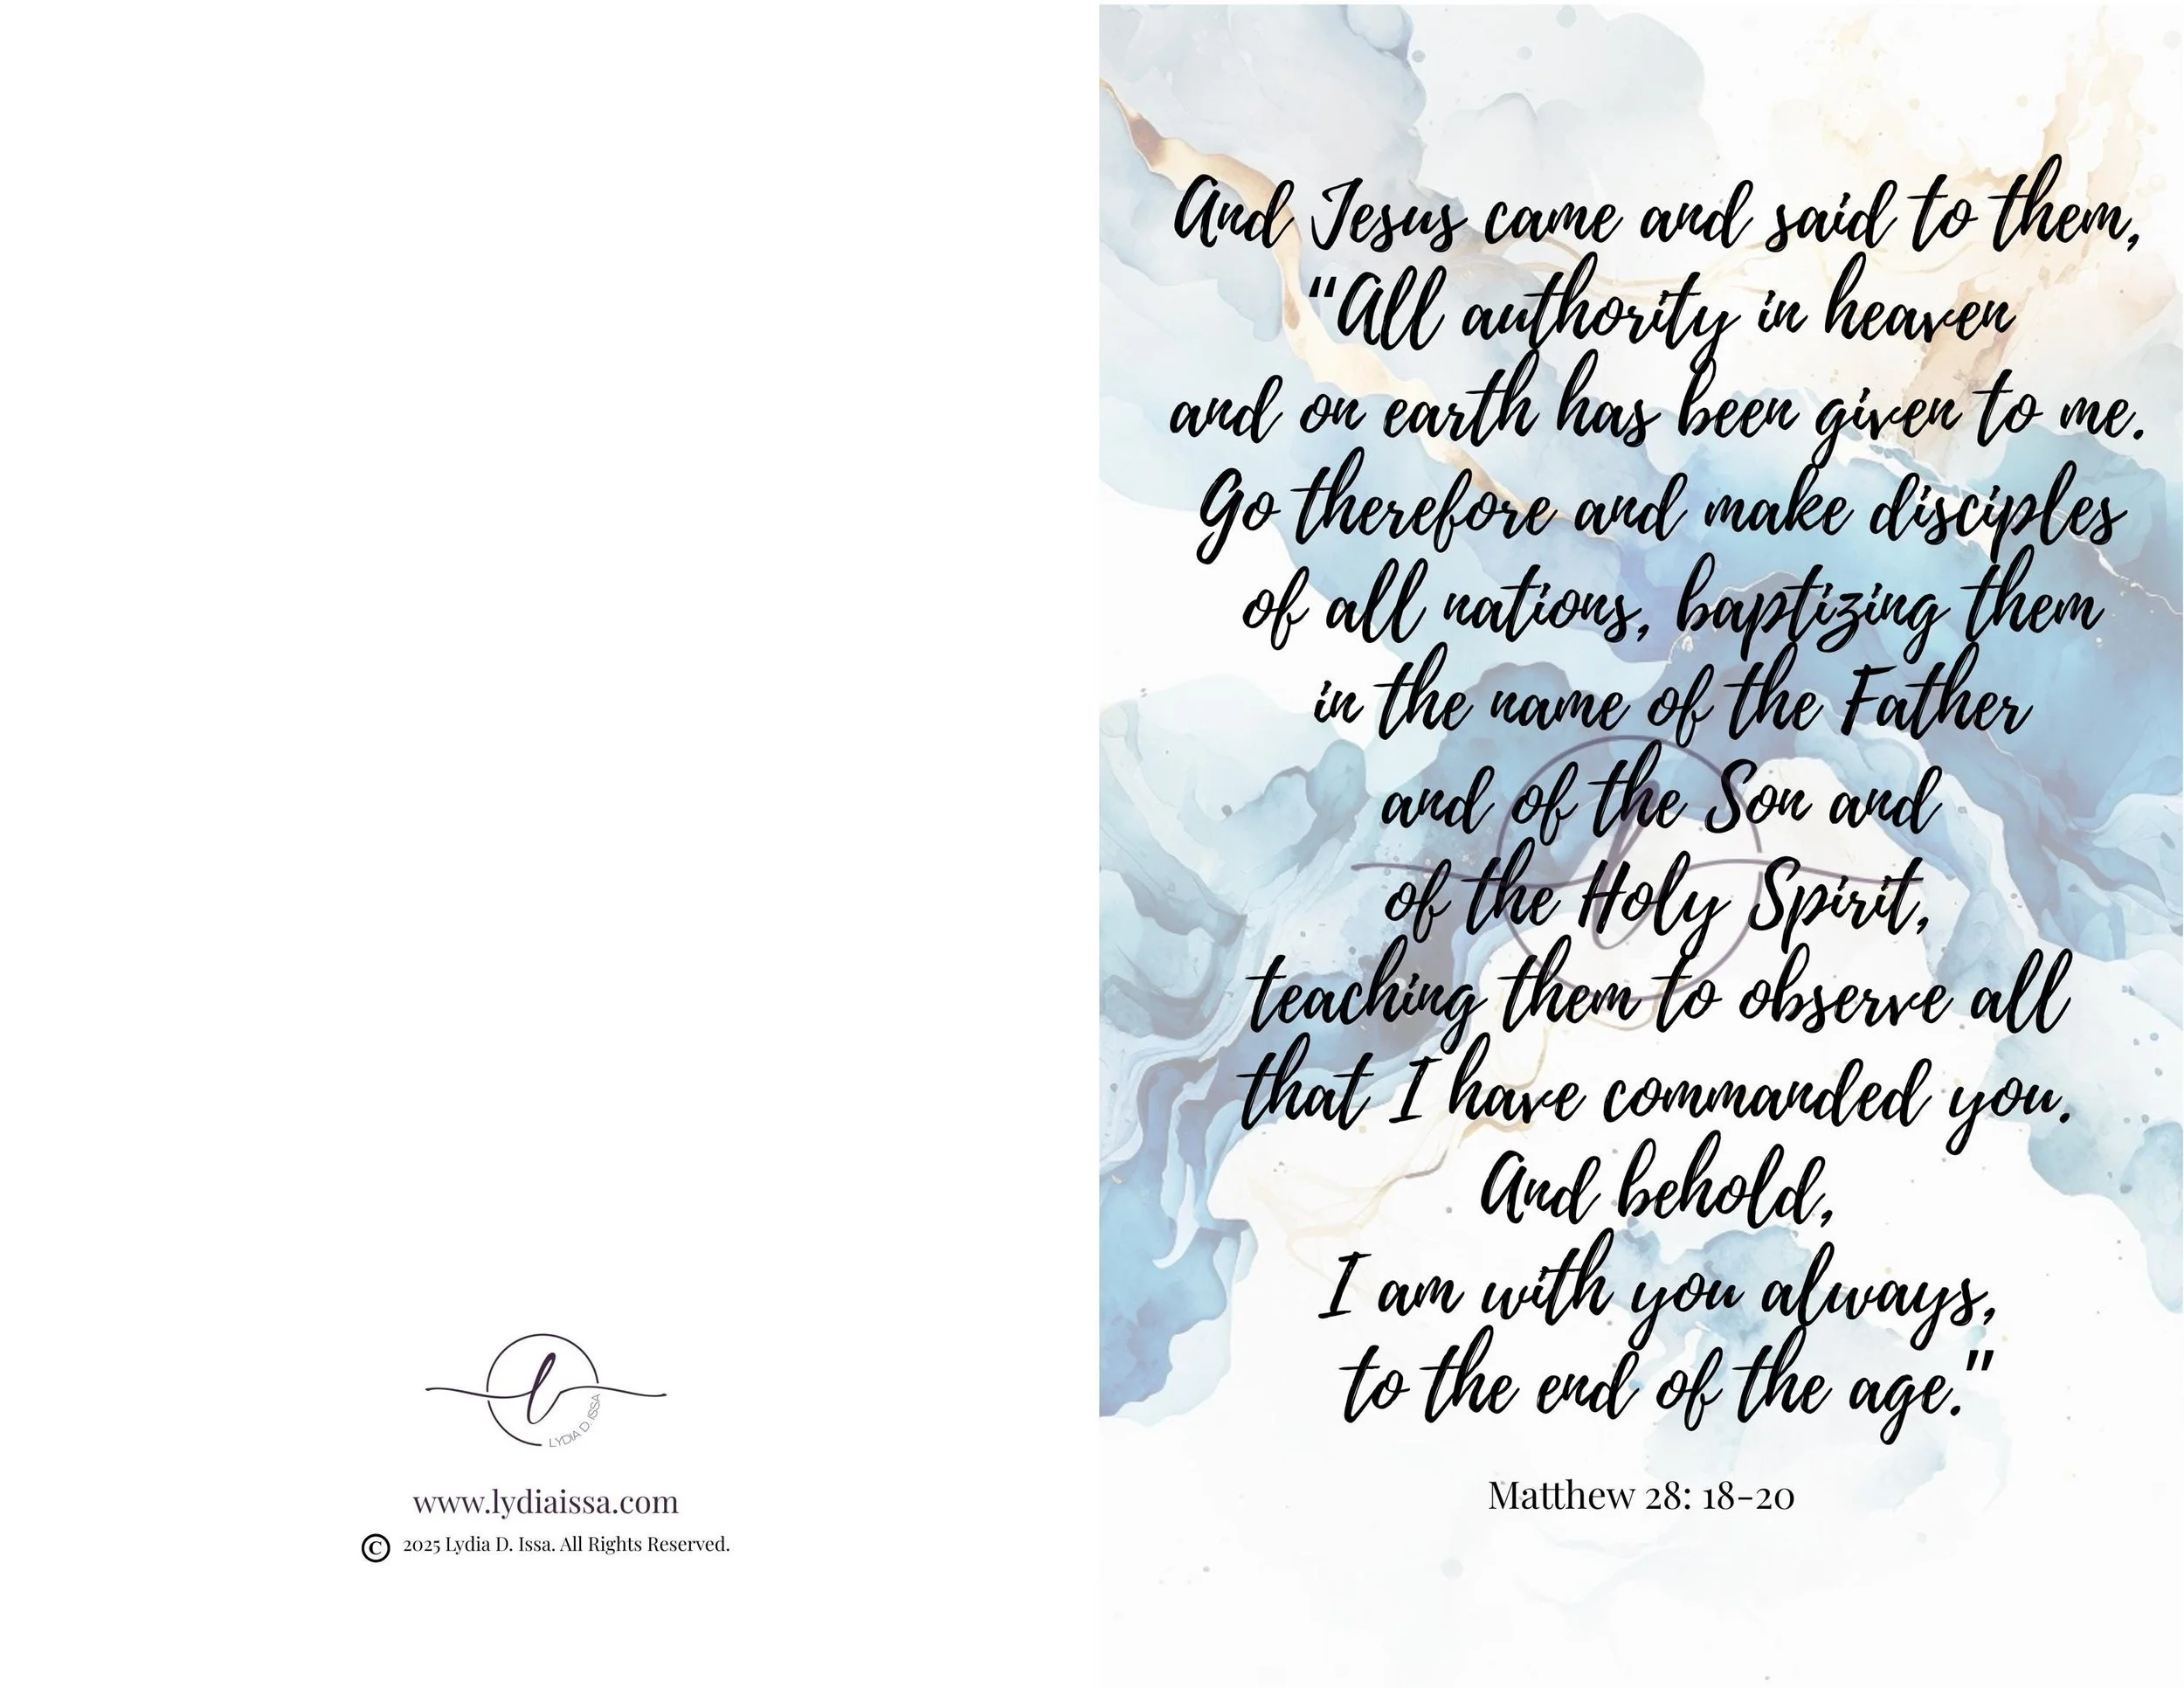 And Jesus came and said to them,
“All authority in heaven
and on earth has been given to me.
Go therefore and make disciples
of all nations, baptizing them
in the name of the Father
and of the Son and
of the Holy Spirit,
teaching them to observe all
that I have commanded you.
And behold,
I am with you always,
to the end of the age."
Matthew 28: 18-20
l
LYDIA D. ISSA
www.lydiaissa.com
© 2025 Lydia D. Issa. All Rights Reserved.
l